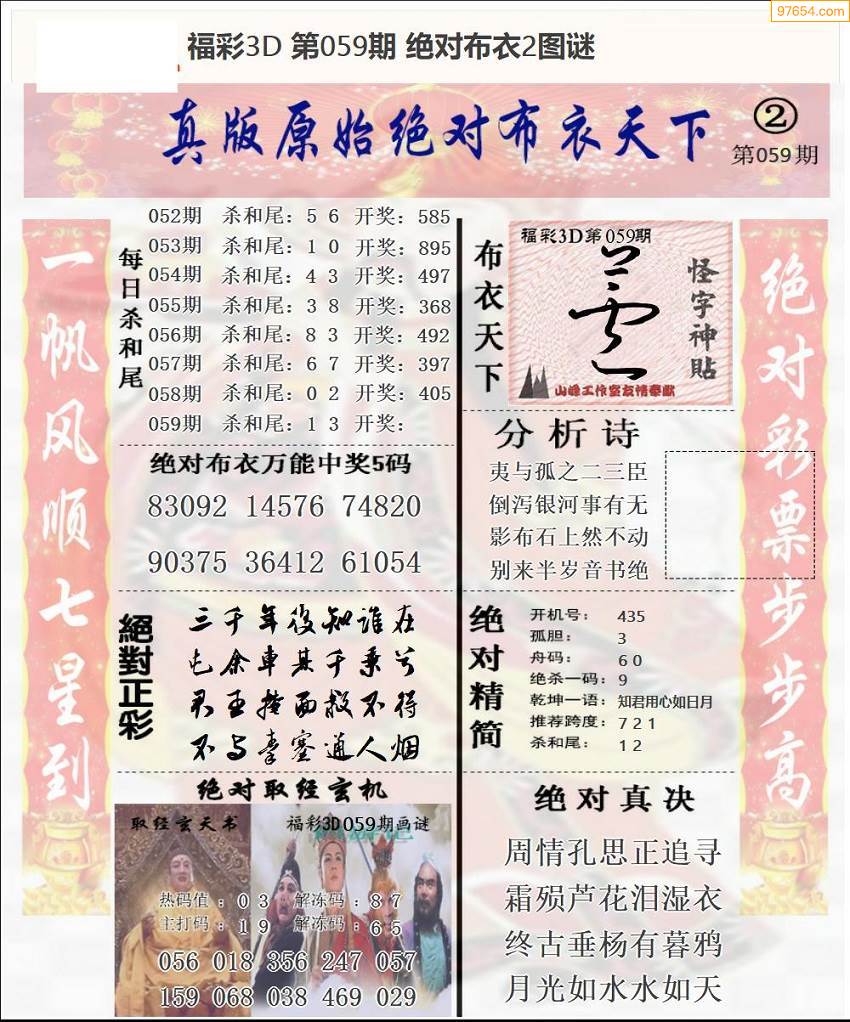 97654.com
福彩3D 第059期 绝对布衣2图谜
真版原始绝对布衣天下
②
第059期
一帆风顺七星到
每日杀和尾
052期 杀和尾：5 6 开奖：585
053期 杀和尾：1 0 开奖：895
054期 杀和尾：4 3 开奖：497
055期 杀和尾：3 8 开奖：368
056期 杀和尾：8 3 开奖：492
057期 杀和尾：6 7 开奖：397
058期 杀和尾：0 2 开奖：405
059期 杀和尾：1 3 开奖：
绝对布衣万能中奖5码
83092 14576 74820
90375 36412 61054
絕對正彩
三千年後知谁在
屯余車其千乘兮
君王掩面救不得
不与秦塞通人烟
绝对取经玄机
取经玄天书
福彩3D059期画谜
热码值：0 3 解冻码：8 7
主打码：1 9 解冻码：6 5
056 018 356 247 057
159 068 038 469 029
布衣天下
福彩3D第059期
怪字神贴
山峰工作室友情奉献
分析诗
夷与孤之二三臣
倒泻银河事有无
影布石上然不动
别来半岁音书绝
绝对精简
开机号：435
孤胆：3
舟码：6 0
绝杀一码：9
乾坤一语：知君用心如日月
推荐跨度：7 2 1
杀和尾：1 2
绝对真决
周情孔思正追寻
霜殒芦花泪湿衣
终古垂杨有暮鸦
月光如水水如天
绝对彩票步步高